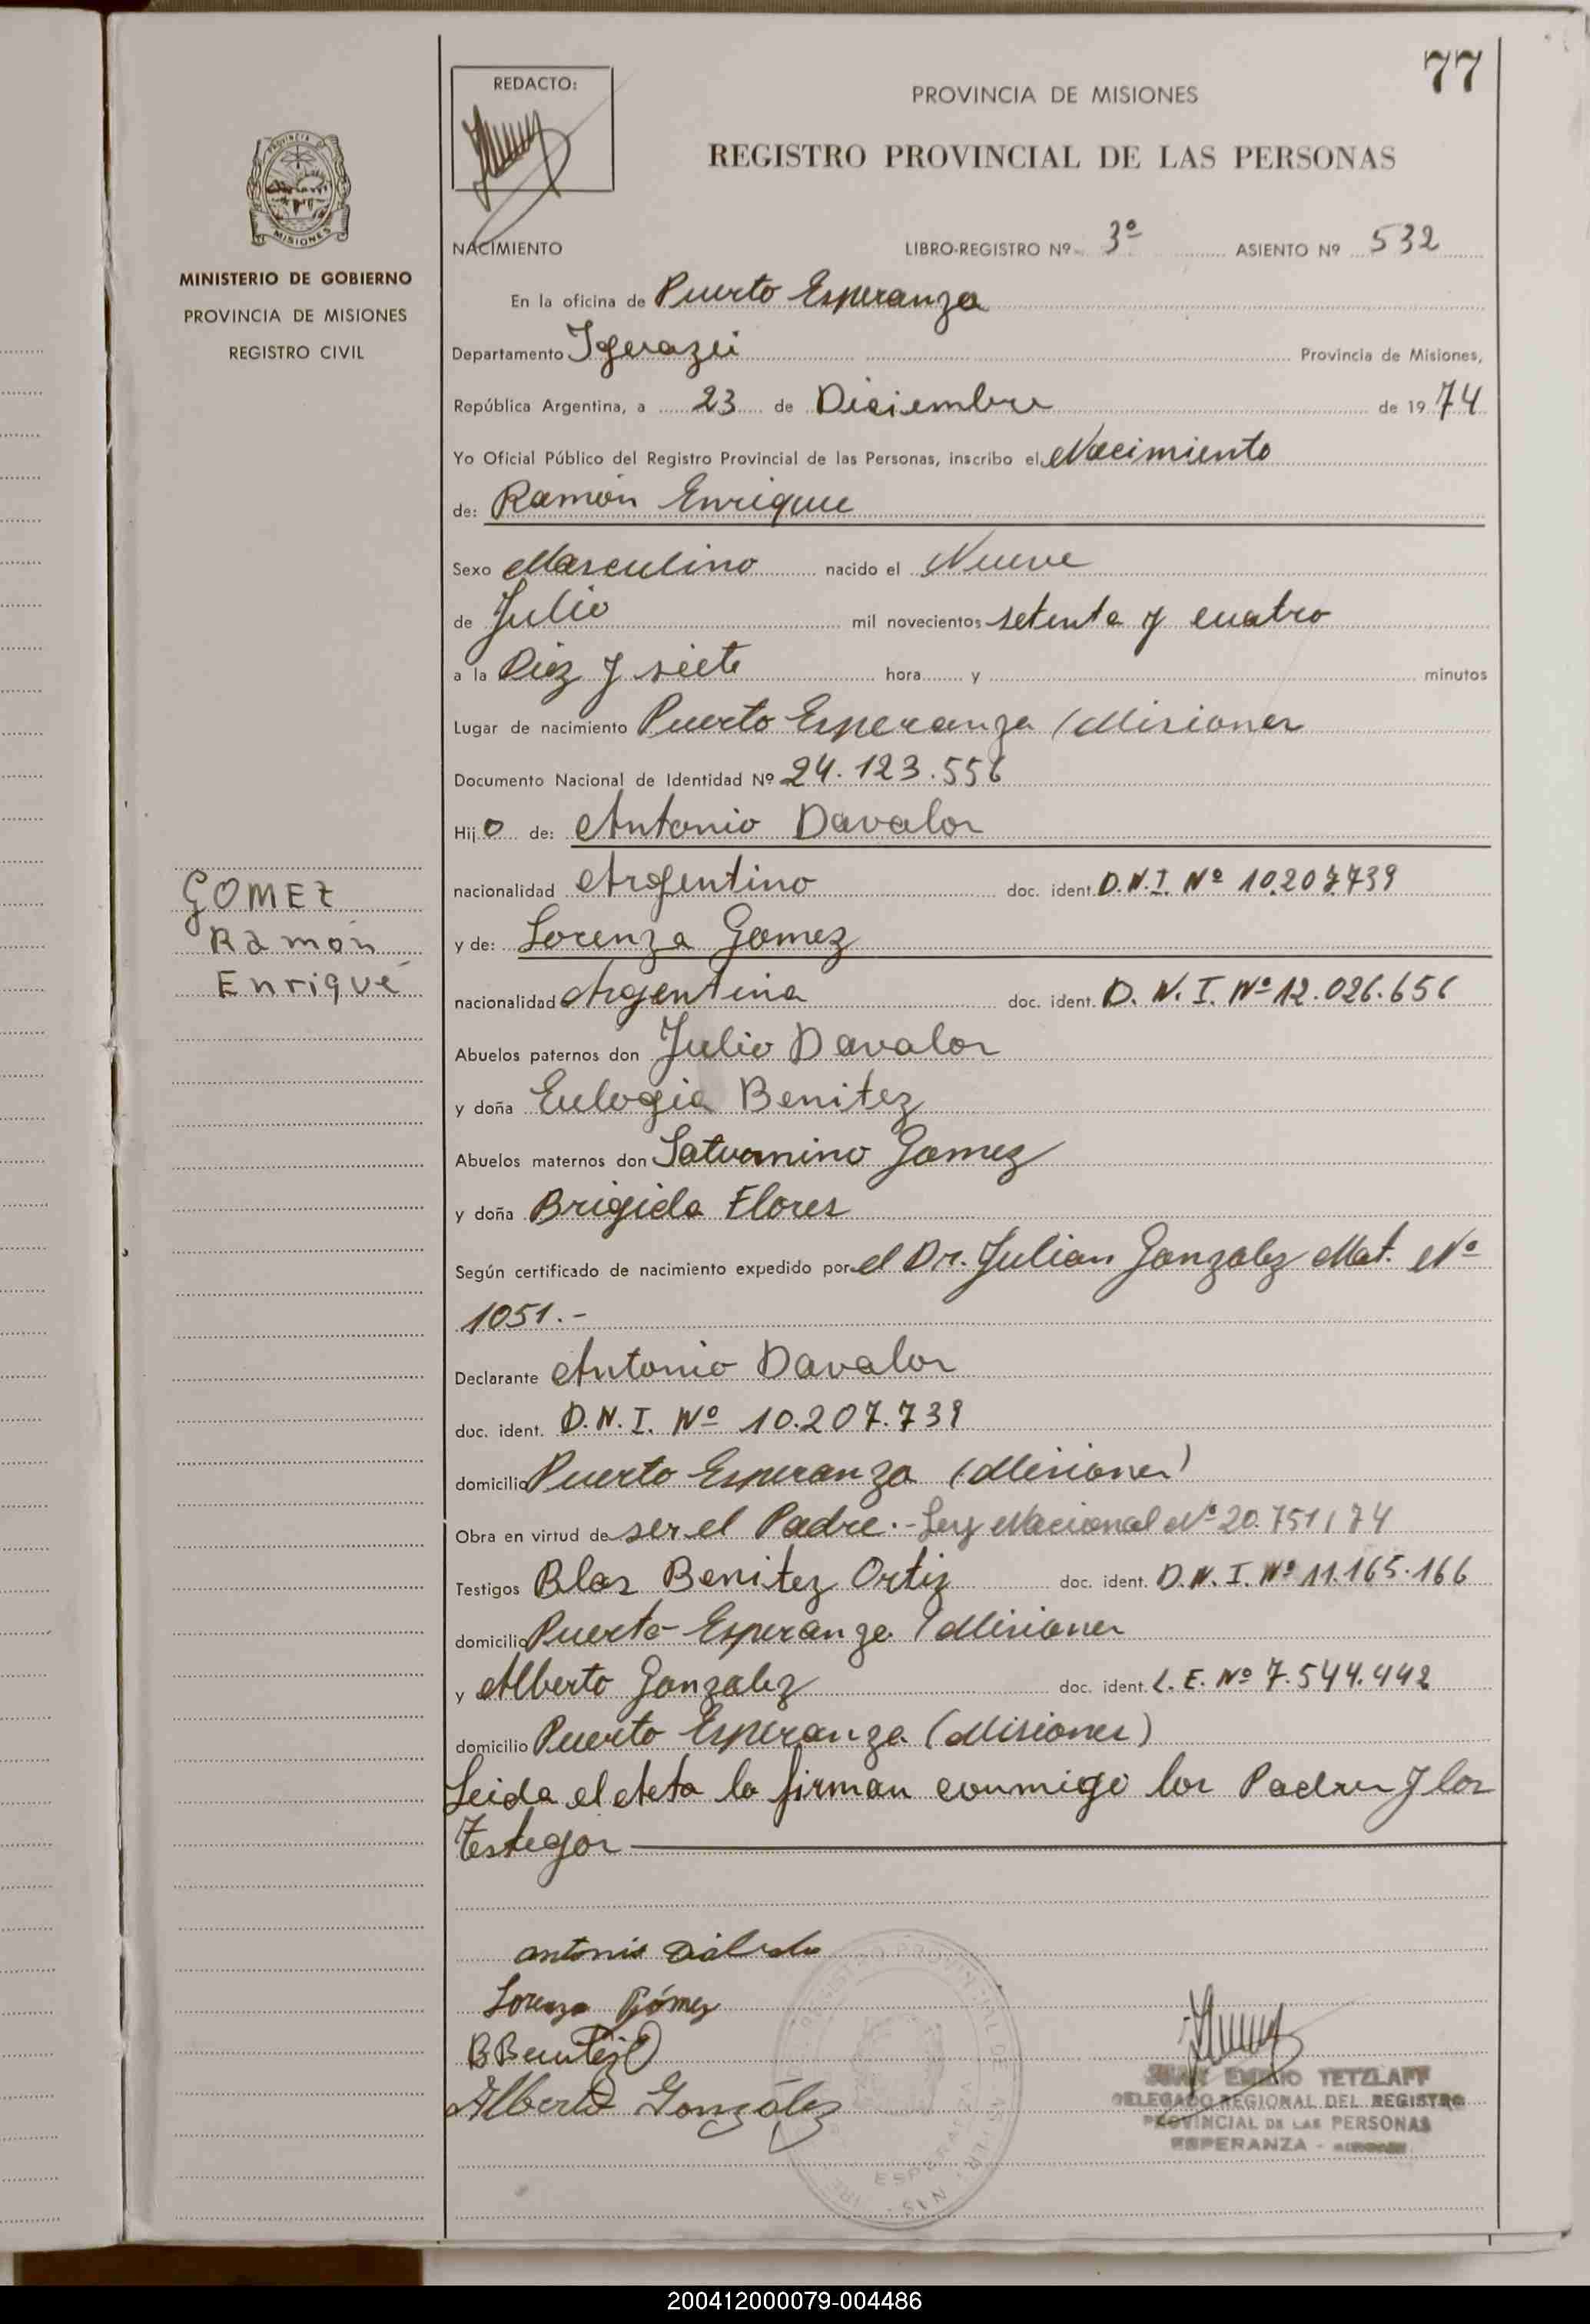 77
REDACTO:
PROVINCIA DE MISIONES
REGISTRO PROVINCIAL DE LAS PERSONAS
NACIMIENTO LIBRO-REGISTRO Nº 3º ASIENTO Nº 532
PROVINCIA DE
MISIONES
MINISTERIO DE GOBIERNO
PROVINCIA DE MISIONES
REGISTRO CIVIL
GOMEZ
Ramón
Enrique
En la oficina de Puerto Esperanza
Departamento Iguazú Provincia de Misiones,
República Argentina, a 23 de Diciembre de 19 74
Yo Oficial Público del Registro Provincial de las Personas, inscribo el Nacimiento
de: Ramón Enrique
Sexo Masculino nacido el Nueve
de Julio mil novecientos setenta y cuatro
a la Diez y siete hora y minutos
Lugar de nacimiento Puerto Esperanza (Misiones
Documento Nacional de Identidad Nº 24.123.556
Hij o de: Antonio Davalos
nacionalidad Argentino doc. ident. D.N.I. Nº 10.207.739
y de: Lorenza Gomez
nacionalidad Argentina doc. ident. D.N.I. Nº 12.026.656
Abuelos paternos don Julio Davalos
y doña Eulogia Benitez
Abuelos maternos don Saturnino Gomez
y doña Brigida Flores
Según certificado de nacimiento expedido por el Dr. Julian Gonzalez Mat. Nº
1051.-
Declarante Antonio Davalos
doc. ident. D.N.I. Nº 10.207.739
domicilio Puerto Esperanza (Misiones)
Obra en virtud de ser el Padre.- Ley Nacional Nº 20.751/74
Testigos Blas Benitez Ortiz doc. ident. D.N.I. Nº 11.165.166
domicilio Puerto Esperanza (Misiones
y Alberto Gonzalez doc. ident. L.E. Nº 7.544.442
domicilio Puerto Esperanza (Misiones)
Leida el Acta la firman conmigo los Padres y los
Testigos
antonio
Lorenza Gómez
B Benitez O
Alberto González
JUAN EMILIO TETZLAFF
DELEGADO REGIONAL DEL REGISTRO
PROVINCIAL DE LAS PERSONAS
ESPERANZA -
200412000079-004486